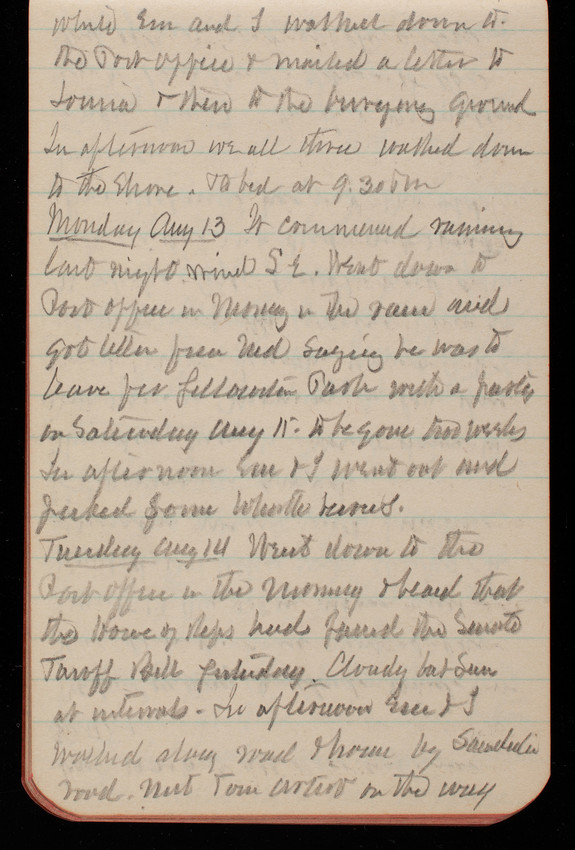 while Em and I walked down to
the Post office & mailed a letter to
Louisa & then to the burying ground
In afternoon we all three walked down
to the Shore. To bed at 9.30 Pm
Monday Aug 13 It commenced raining
last night wind S E. Went down to
Post office in Morning in the rain and
got letter from Ned saying he was to
leave for Yellowstone Park with a party
on Saturday Aug 11. to be gone two weeks
In afternoon Em & I went out and
picked some Whortle berries.
Tuesday Aug 14 Went down to the
Post office in the Morning & heard that
the House of Reps had passed the Senate
Tariff Bill yesterday. Cloudy but Sun
at intervals - In afternoon Em & I
walked along road & home by
road. Met Tom on the way